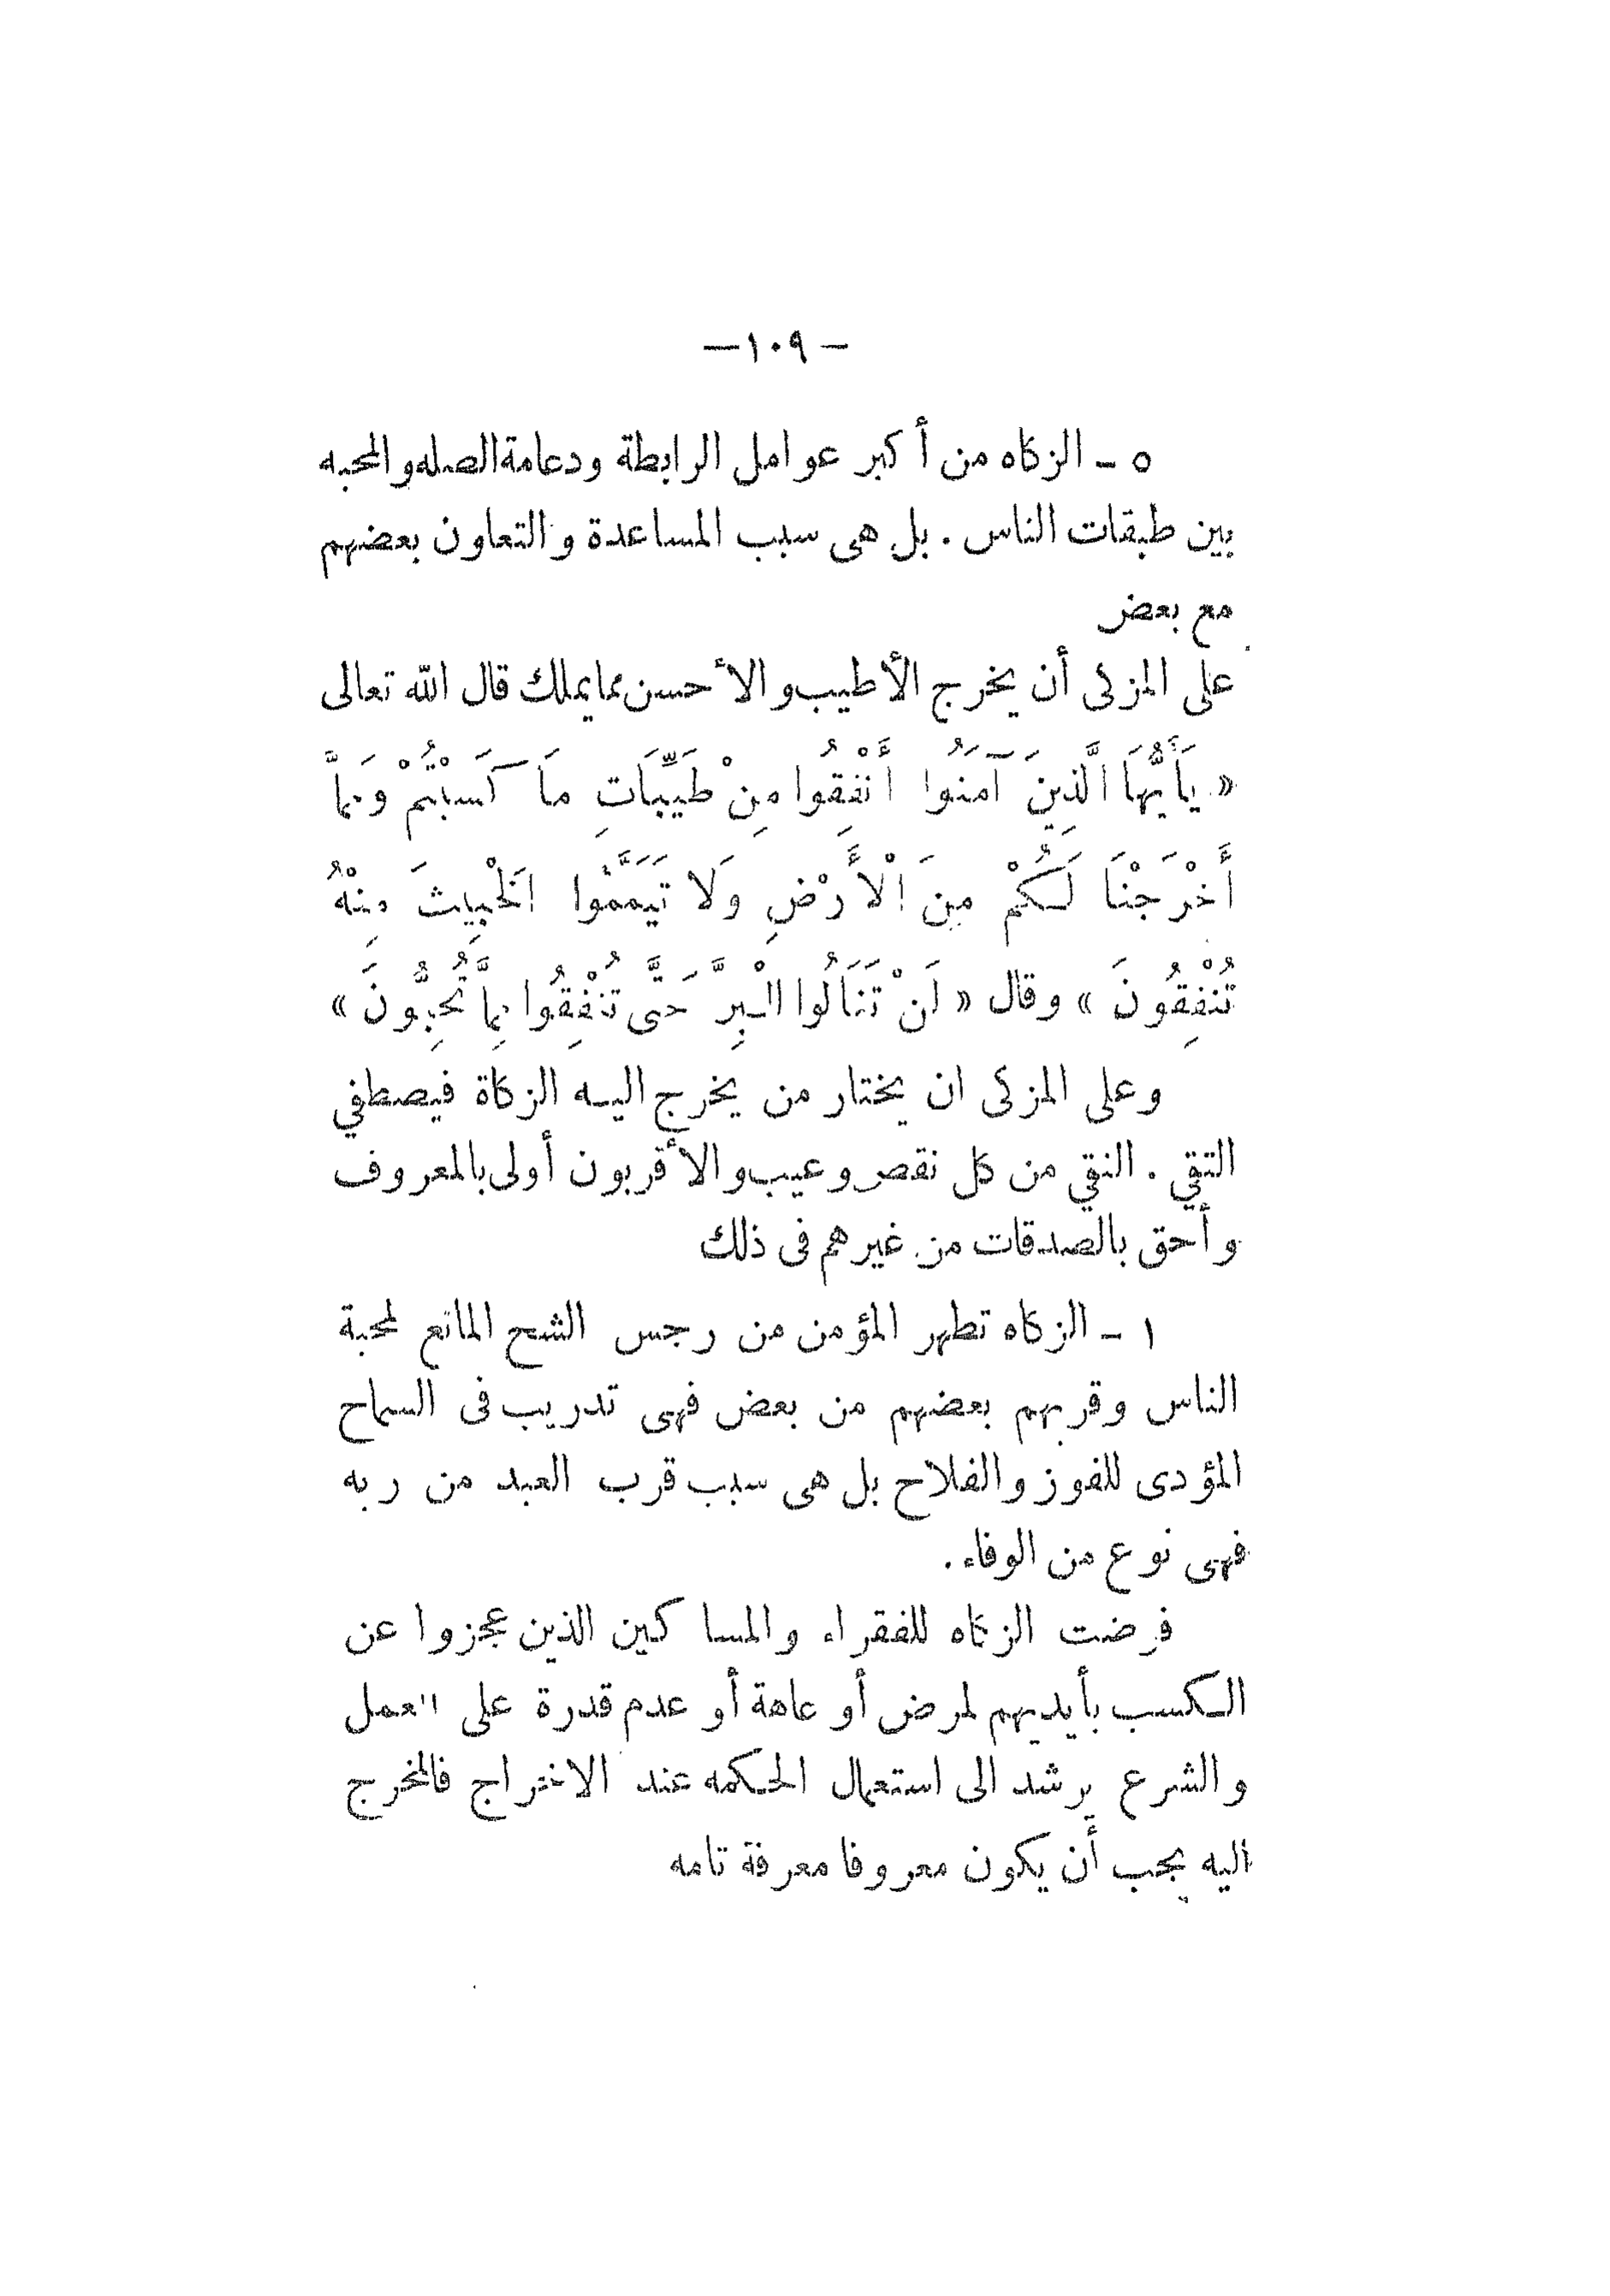 — ١٠٩ —
٥ - الزكاه من أكبر عوامل الرابطة ودعامة الصله والمحبه
بين طبقات الناس . بل هى سبب المساعدة والتعاون بعضهم
مع بعض
على المزكى أن يخرج الأطيب والأحسن مما يملك قال الله تعالى
« يَأَيُّهَا الَّذِينَ آمَنُوا أَنْفِقُوا مِنْ طَيِّبَاتِ مَا كَسَبْتُمْ وَمِمَّا
أَخْرَجْنَا لَكُمْ مِنَ الْأَرْضِ وَلَا تَيَمَّمُوا الْخَبِيثَ مِنْهُ
تُنْفِقُونَ » وقال « لَنْ تَنَالُوا الْبِرَّ حَتَّى تُنْفِقُوا مِمَّا تُحِبُّونَ »
وعلى المزكى ان يختار من يخرج اليه الزكاة فيصطفي
التقي . النقي من كل نقص وعيب والأقربون أولى بالمعروف
وأحق بالصدقات من غيرهم فى ذلك
١ - الزكاه تطهر المؤمن من رجس الشح المانع لمحبة
الناس وقربهم بعضهم من بعض فهى تدريب فى السماح
المؤدى للفوز والفلاح بل هى سبب قرب العبد من ربه
فهى نوع من الوفاء .
فرضت الزكاه للفقراء والمساكين الذين عجزوا عن
الكسب بأيديهم لمرض أو عاهة أو عدم قدرة على العمل
والشرع يرشد الى استعمال الحكمه عند الاخراج فالمخرج
اليه يجب أن يكون معروفا معرفة تامه